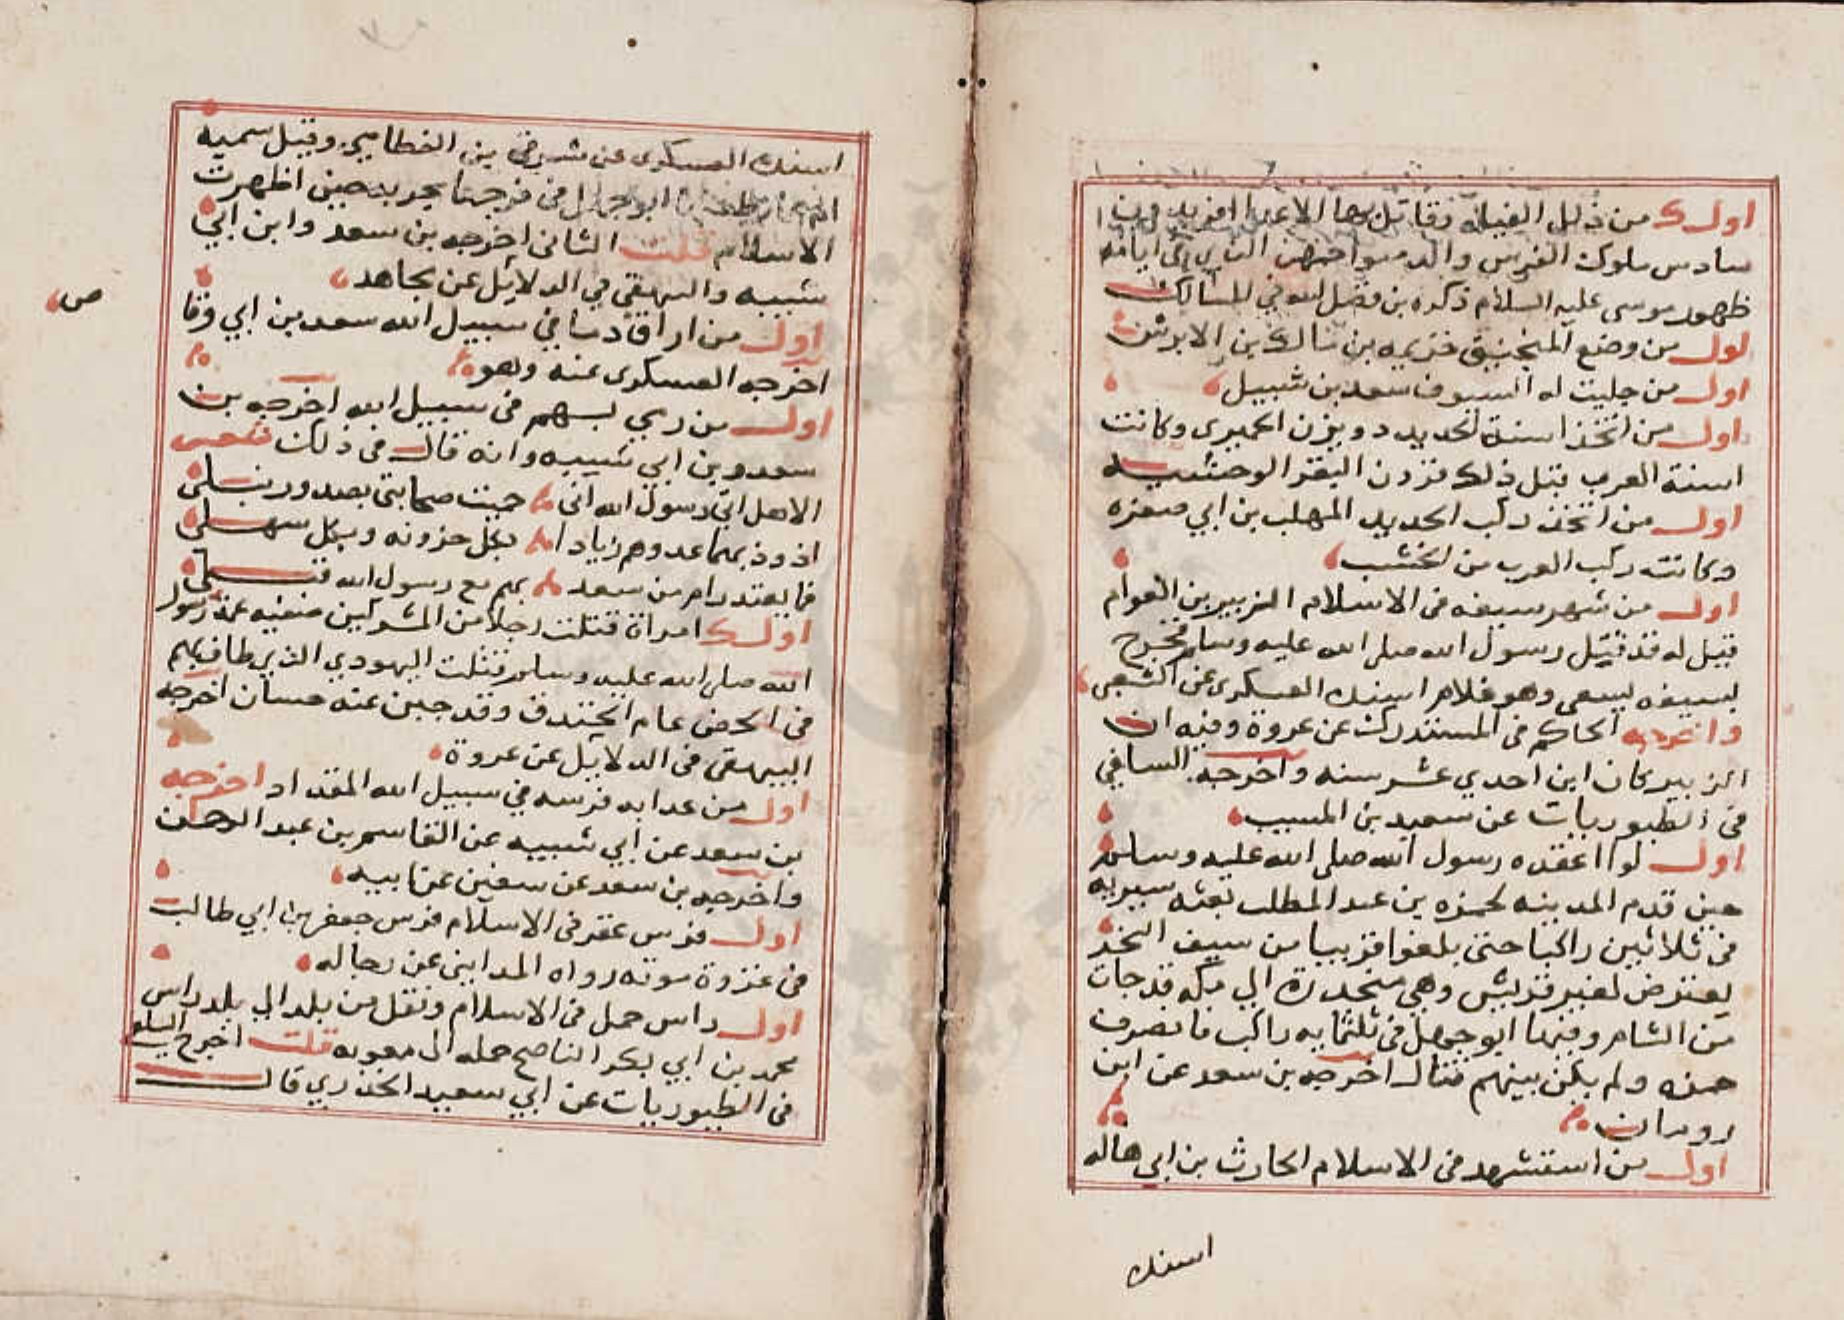 اول من ذلل الفيلة وقاتل بها الاعدا افريدون
سادس ملوك الفرس والد منواخهن الذي في ايامه
ظهور موسى عليه السلام ذكره بن فضل الله في المسالك
اول من وضع المنجنيق خزيمه بن مالك بن الابرش
اول من جليت له السيوف سعد بن شبيل
اول من اتخذ اسنة الحديد دويزن الحميرى وكانت
اسنة العرب قبل ذلك قرون البقر الوحشيه
اول من اتخذ ركب الحديد المهلب بن ابي صفره
وكانت ركب العرب من الخشب
اول من شهر سيفه فى الاسلام الزبير بن العوام
قيل له قد قتل رسول الله صلى الله عليه وسلم فخرج
بسيفه يسعى وهو غلام اسنده العسكرى عن الشعبى
واخرجه الحاكم فى المستدرك عن عروة وفيه ان
الزبير كان ابن احدي عشر سنه واخرجه السلفي
فى الطيوريات عن سعيد بن المسيب
اول لوا اعقده رسول الله صلى الله عليه وسلم
حين قدم المدينه لحمزه بن عبد المطلب بعثه سريه
فى ثلاثين راكبا حتى بلغوا قريبا من سيف البحر
يعترض لعير قريش وهي منحدرة الي مكه قد جات
من الشام وفيها ابو جهل فى ثلثمايه راكب فانصرف
حمزه ولم يكن بينهم قتال اخرجه بن سعد عن ابن
رومان
اول من استشهد فى الاسلام الحارث بن ابى هاله
اسنده
اسنده العسكرى عن شرقى بن القطامي وقيل سميه
ام عمار طعنها ابو جهل فى فرجها بحربه حين اظهرت
الاسلام قلت الثانى اخرجه بن سعد وابن ابي
شيبه والبيهقي في الدلايل عن مجاهد
اول من اراق دما في سبيل الله سعد بن ابي وقا
ص
اخرجه العسكرى عنه وهو
اول من رمي بسهم فى سبيل الله اخرجه بن
سعد وبن ابي شيبه وانه قال فى ذلك شعر
الا هل اتى رسول الله انى حميت صحابتى بصدور نبلى
اذود بها عدوهم زيادا بكل حزونه وبكل سهلى
فما يعتد رام من سعد بهم مع رسول الله قبلى
اول امراة قتلت رجلا من المشركين صفيه عمة رسول
الله صلى الله عليه وسلم قتلت اليهودي الذي طاف بهم
فى الحصن عام الخندق وقد جبن عنه حسان اخرجه
البيهقى فى الدلايل عن عروة
اول من عدا به فرسه في سبيل الله المقداد اخرجه
بن سعد عن ابي شيبه عن القاسم بن عبد الرحمن
واخرجه بن سعد عن سفين عن ابيه
اول فرس عقر فى الاسلام فرس جعفر بن ابي طالب
فى غزوة موته رواه المداينى عن رجاله
اول راس حمل فى الاسلام ونقل من بلد الي بلد راس
محمد بن ابي بكر الناصح حمله الى معويه قلت اخرج السلفي
فى الطيوريات عن ابي سعيد الخدري قال